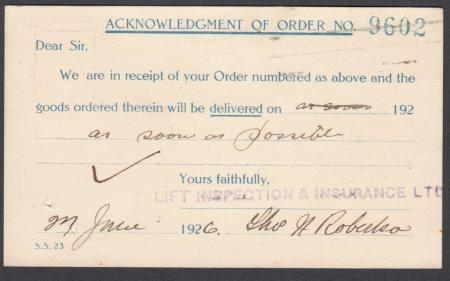 ACKNOWLEDGMENT OF ORDER NO. 9602
Dear Sir,
We are in receipt of your Order numbered as above and the
goods ordered therein will be delivered on as soon 192
as soon as possible
Yours faithfully,
LIFT INSPECTION & INSURANCE LTD
June 1926. Thos N Robertson
S.S. 23